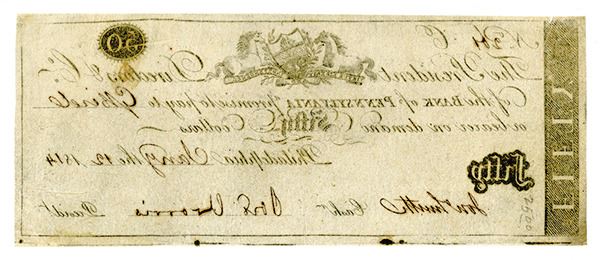 50
No 261 C
The President Directors & Co.
Of the BANK of PENNSYLVANIA promise to pay to
or bearer on demand Fifty Dollars
Philadelphia Jany the 12 1814
Fifty
Jon Smith Cashr Jos S Norris Presidt
FIFTY